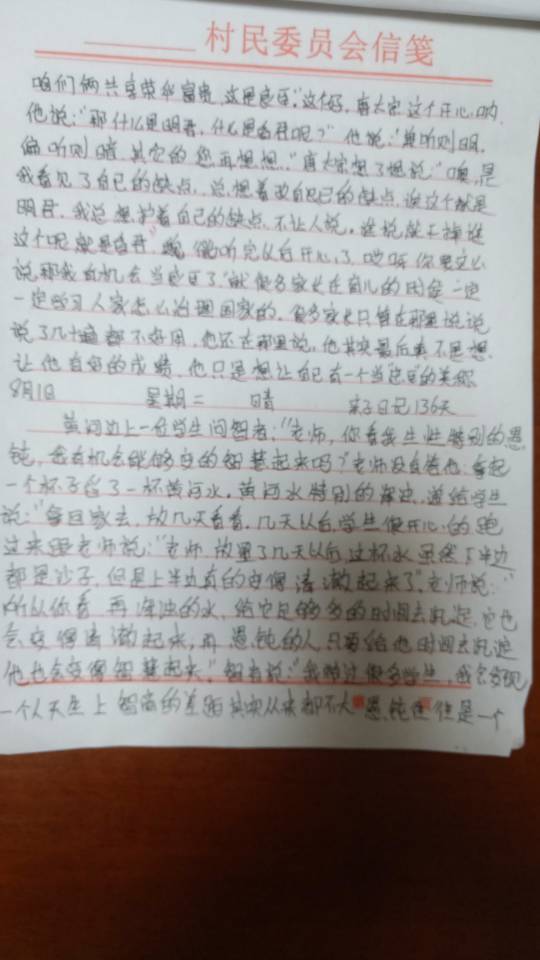 村民委员会信笺
咱们俩共享荣华富贵,这是良臣。"这个好,唐太宗这个开心哟,
他说:"那什么是明君,什么是昏君呢?"他说:"兼听则明,
偏听则暗,其它的您再想想。"唐太宗想了想说:"噢,是
我看见了自己的缺点,总想着改自己的缺点,这个就是
明君,我总想护着自己的缺点,不让人说,谁说就干掉谁
这个呢就是昏君。魏听完以后开心了,哎呀你要这么
说那我有机会当良臣了。"就很多家长在育儿的时候一定
一定学习人家怎么治理国家的,很多家长只管在那里说说
说了几十遍都不好用,他还在那里说,他其实最后真不是想
让他有好的成绩,他只是想让自己有一个当"忠臣"的美你
8月1日 星期二 晴 亲子日记136天
黄河边上一位学生问智者:"老师,你看我生性特别的愚
钝,会有机会能够变的智慧起来吗?"老师没有答他,拿起
一个杯子舀了一杯黄河水,黄河水特别的浑浊,递给学生
说:"拿回家去,放几天看看,几天以后学生很开心的跑
过来跟老师说:"老师,放置了几天以后这杯水虽然下半边
都是沙子,但是上半边真的变得清澈起来了"老师说:"
所以你看,再浑浊的水,给它足够多的时间去沉淀,它也
会变得清澈起来,再愚钝的人只要给他时间去沉淀
他也会变得智慧起来,"智者说:"我教过很多学生,我会发现
一个人天生上智商的差距其实从来都不大,愚钝但是一个